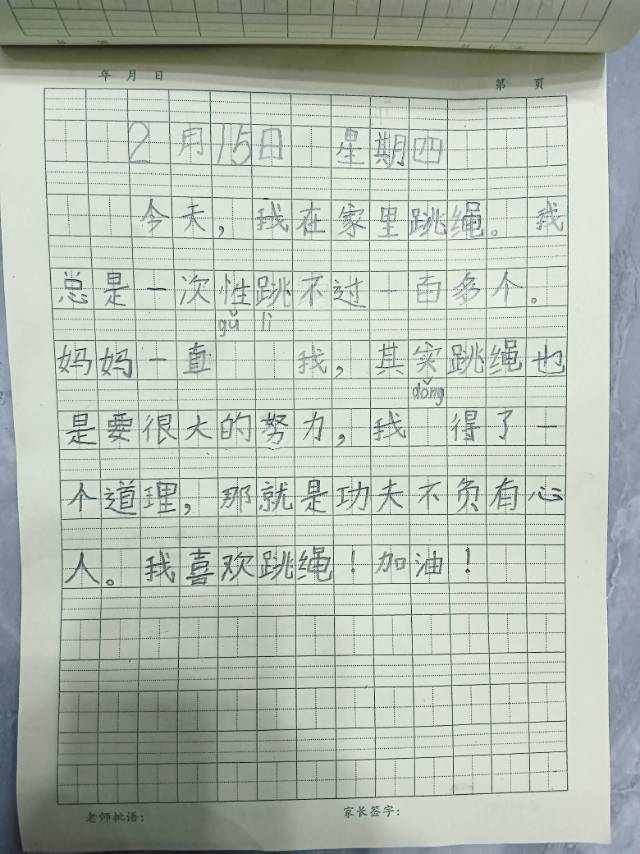 年 月 日 第 页
2月15日 星期四
今天，我在家里跳绳。我
总是一次性跳不过一百多个。
gǔ lì
妈妈一直 我，其实跳绳也
dǒng
是要很大的努力，我 得了一
个道理，那就是功夫不负有心
人。我喜欢跳绳！加油！
老师批语： 家长签字：